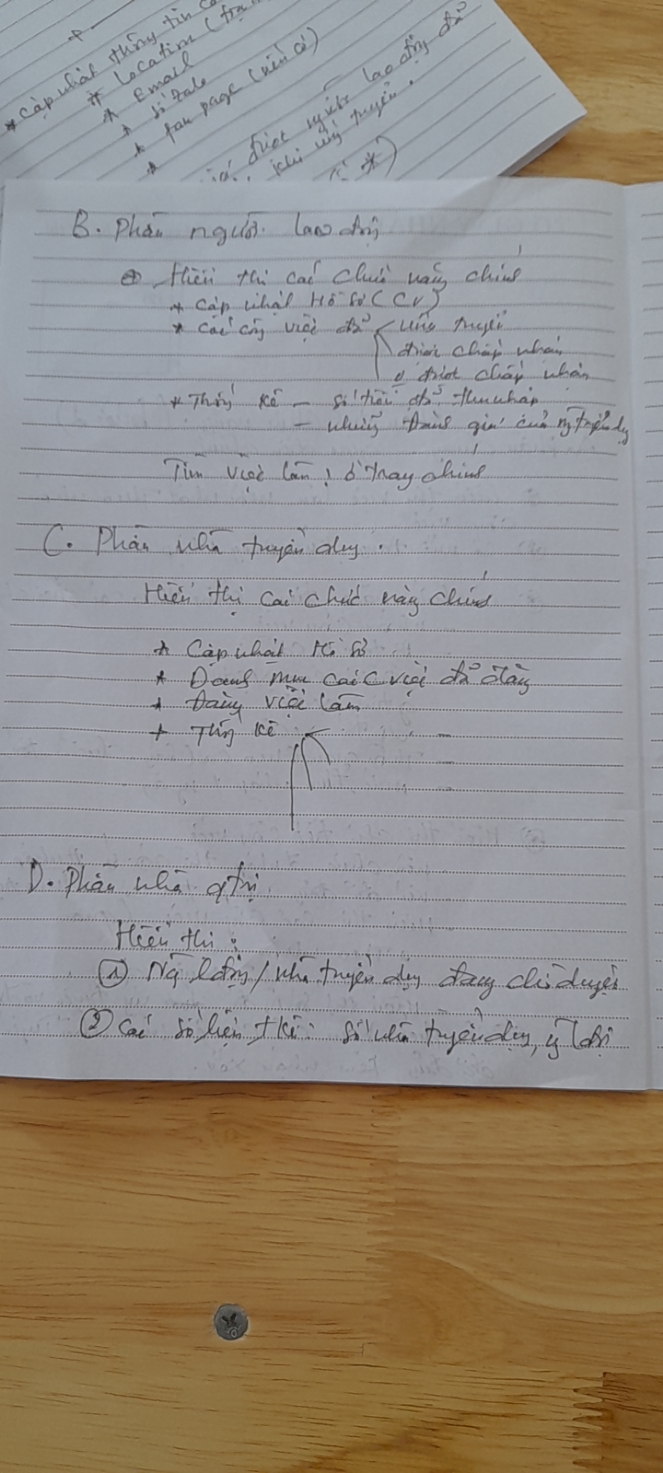 * Cập nhật thông tin
* Location
* Email
* số zalo
* fan page (nếu có)
được người lao động đã
khi ứng tuyển.
B. Phần người lao động
Hiển thị các chức năng chính
* Cập nhật Hồ sơ (CV)
* Các công việc đã ứng tuyển
được chấp nhận
0 được chấp nhận
* Thống kê - Số tiền đã thu nhập
- những đánh giá của ng tuyển dụ
Tìm việc làm ở trang chính
C. Phần nhà tuyển dụng.
Hiển thị các chức năng chính
* Cập nhật Hồ sơ
* Danh mục các việc đã đăng
* Đăng việc làm
+ Thống kê
D. Phần nhà qtrị
Hiển thị :
① Ng lđộng / nhà tuyển dụng đang chờ duyệt
② Các số liệu tkê : Số nhà tuyển dụng,